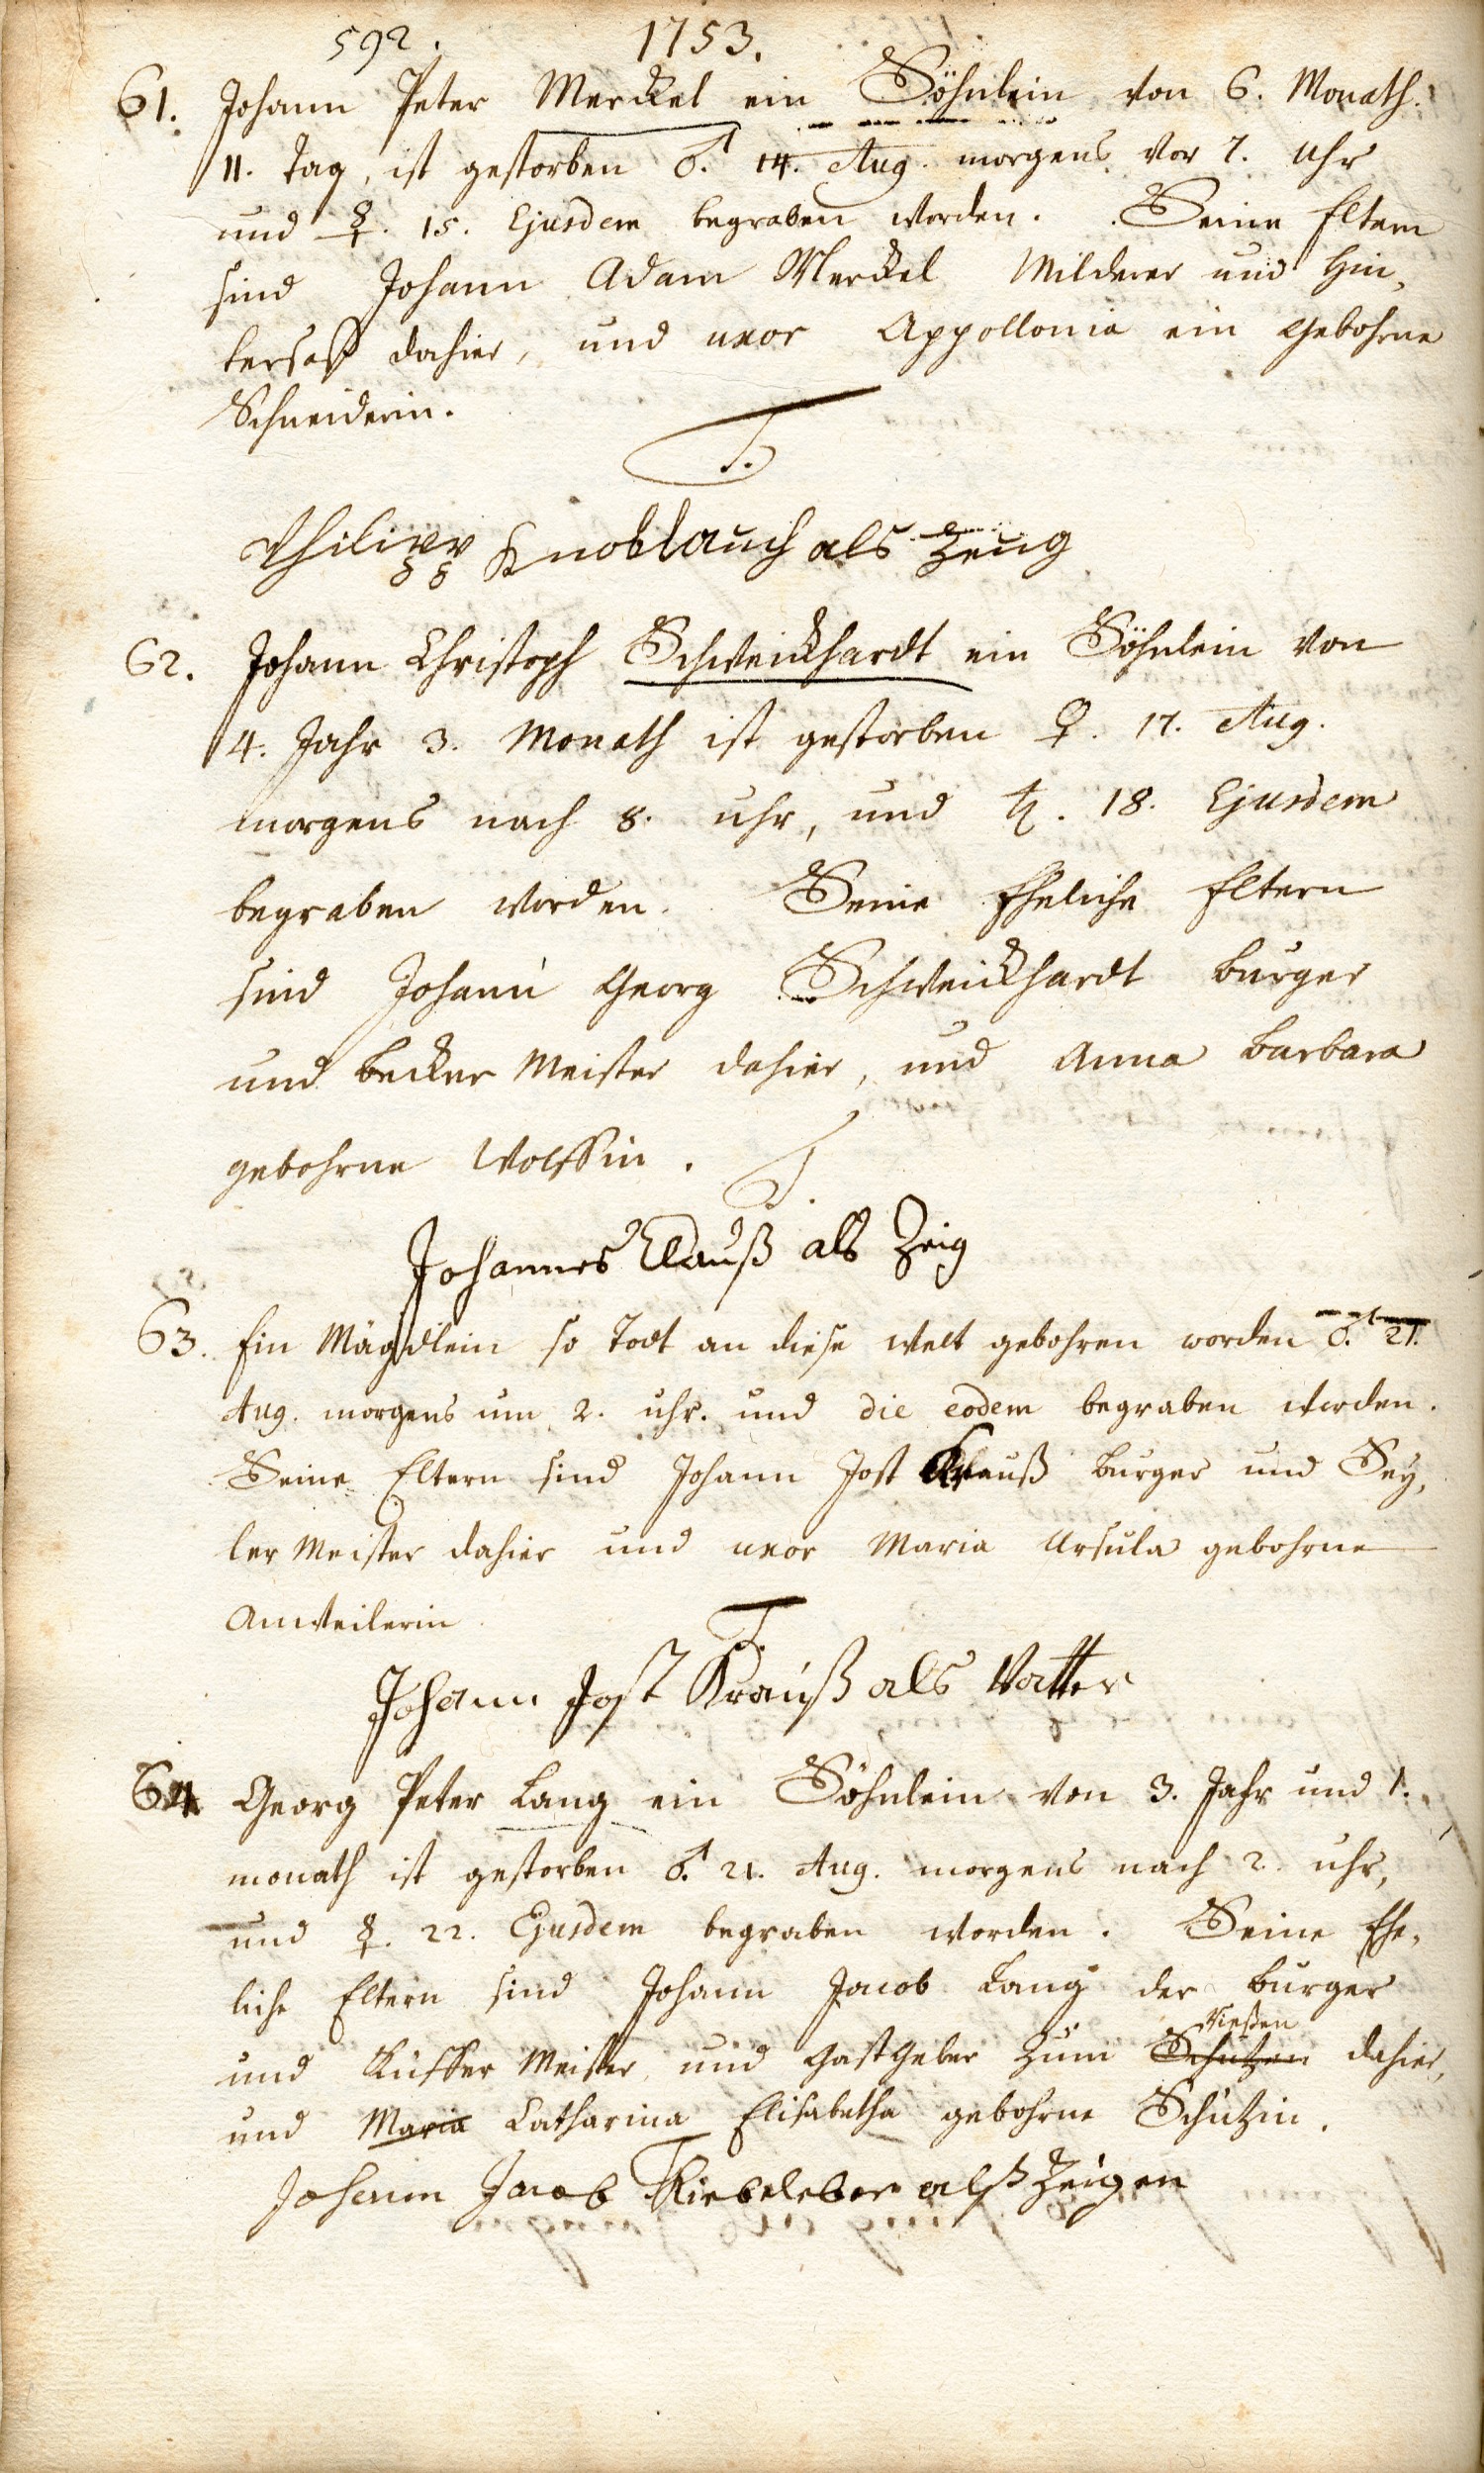 592. 1753.
61. Johann Peter Merckel ein Söhnlein von 6. Monath.
11. Tag, ist gestorben ♂. 14. Aug. morgens vor 7. Uhr
und ☿. 15. Ejusdem begraben worden. Seine Eltern
sind Johann Adam Merckel Milderer und Hin,
tersaß dahier, und uxor Appollonia ein gebohrne
Schneiderin.
T.
Philipp Knoblauch als Zeug
62. Johann Christoph Schweickhardt ein Söhnlein von
4. Jahr 3. Monath ist gestorben ♀. 17. Aug.
morgens nach 8. uhr, und ♄. 18. Ejusdem
begraben worden. Seine Eheliche Eltern
sind Johann Georg Schweickhardt burger
und Becker Meister dahier, und Anna Barbara
gebohrne Wolffin.
T.
Johannes Clauß als Zeig
63. Ein Mägdlein so Todt an diese Welt gebohren worden ♂. 21.
Aug. morgens um 2. uhr. und die eodem begraben worden.
Seine Eltern sind Johann Jost Krauß burger und Sey,
ler Meister dahier und uxor Maria Ursula gebohrne
Anweilerin
T.
Johann Jost Krauß als Vatter
64. Georg Peter Lang ein Söhnlein von 3. Jahr und 1.
monath ist gestorben ♂. 21. Aug. morgens nach 2. uhr,
und ☿. 22. Ejusdem begraben worden. Seine Ehe,
liche Eltern sind Johann Jacob Lang der burger
und Küffer Meister, und Gastgeber zum Schützen Riesen dahier,
und Maria Catharina Elisabetha gebohrne Schützin.
T
Johann Jacob als Zeugen